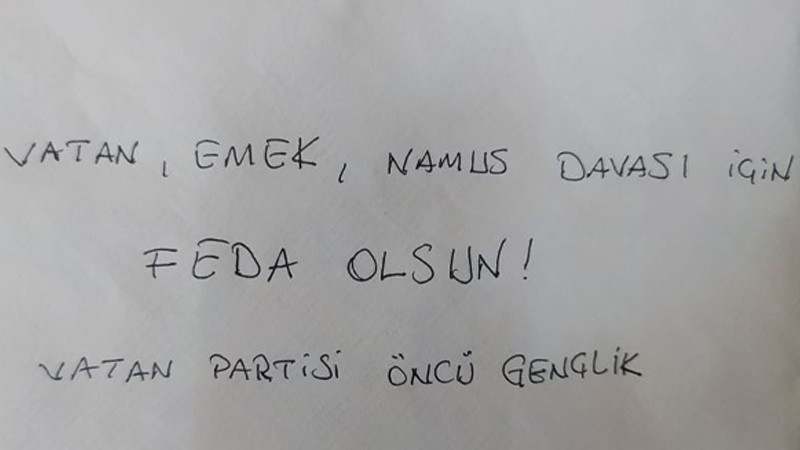 VATAN, EMEK, NAMUS DAVASI İÇİN
FEDA OLSUN!
VATAN PARTİSİ ÖNCÜ GENÇLİK